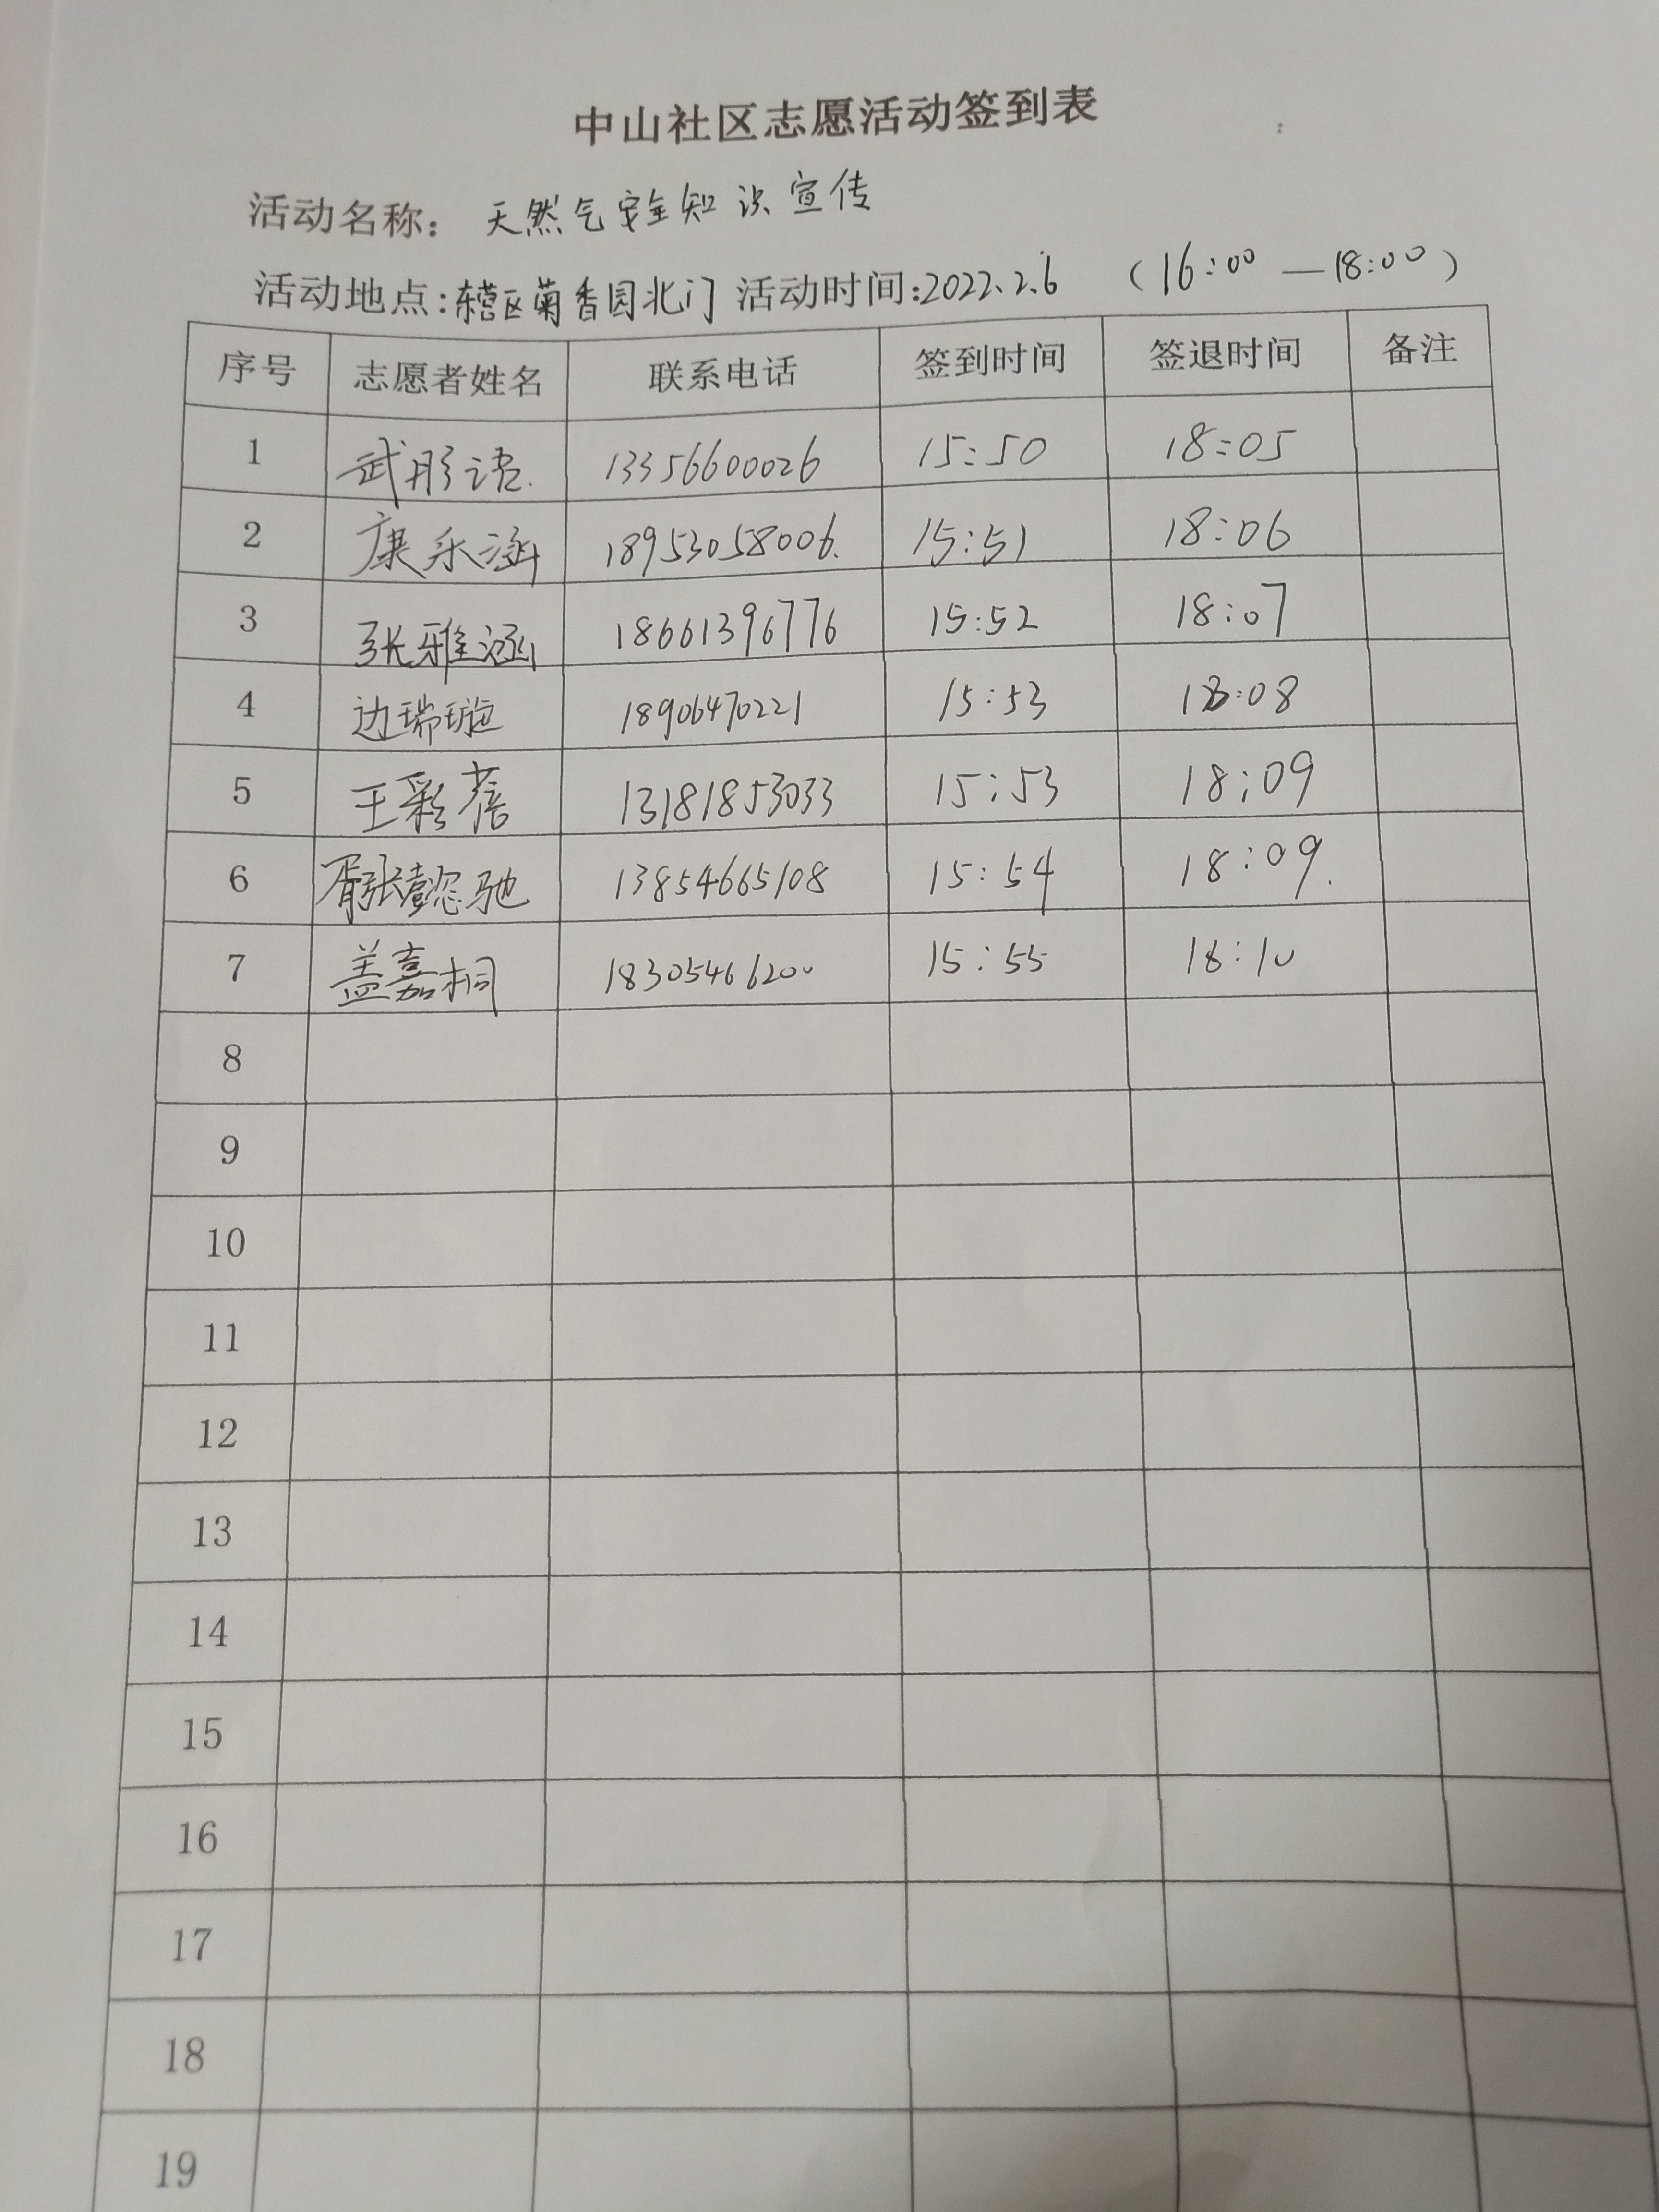 中山社区志愿活动签到表
活动名称: 天然气安全知识宣传
活动地点:东营区菊香园北门 活动时间:2022.2.6 (16:00—18:00)
序号 志愿者姓名 联系电话 签到时间 签退时间 备注
1 武彤语 13356600026 15:50 18:05
2 康乐涵 18953058006 15:51 18:06
3 张雅涵 18661396776 15:52 18:07
4 边瑞璇 18906470221 15:53 18:08
5 王彩蓓 13181853033 15:53 18:09
6 驰 13854665108 15:54 18:09.
7 盖嘉桐 18305466200 15:55 18:10
8
9
10
11
12
13
14
15
16
17
18
19